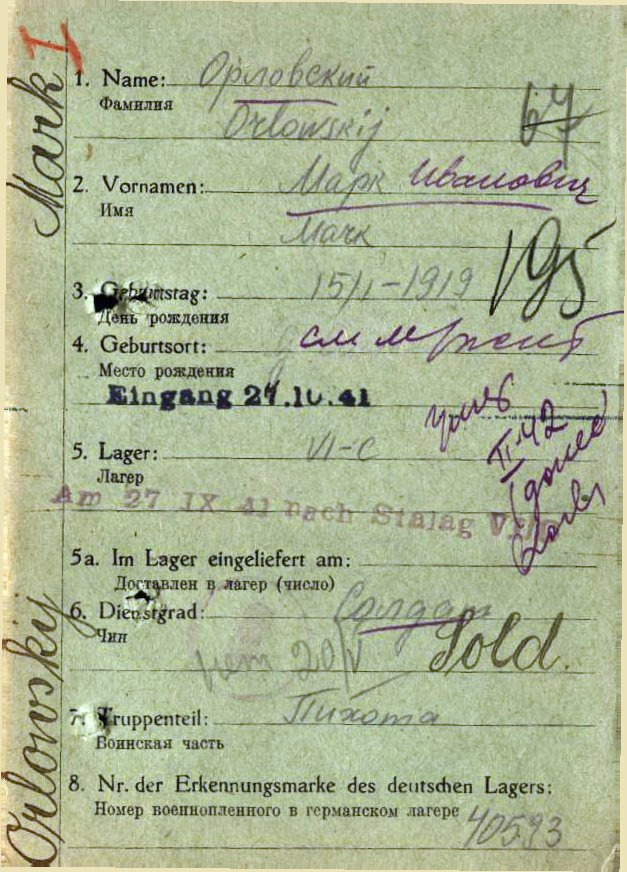 Mark I
Orlowskij
1. Name: Орловский
Фамилия
Orlowskij
67
2. Vornamen: Марк Иванович
Имя
Mark
3. Geburtstag: 15/I-1919
День рождения
195
4. Geburtsort:
Место рождения
Eingang 27.10.41
умер
II-42
5. Lager: VI-C
Лагер
Am 27 IX 41 nach Stalag
5a. Im Lager eingeliefert am:
Доставлен в лагер (число)
6. Dienstgrad: Солдат
Чин
Sold.
7. Truppenteil: Пихота
Воинская часть
8. Nr. der Erkennungsmarke des deutschen Lagers:
Номер военнопленного в германском лагере
40593